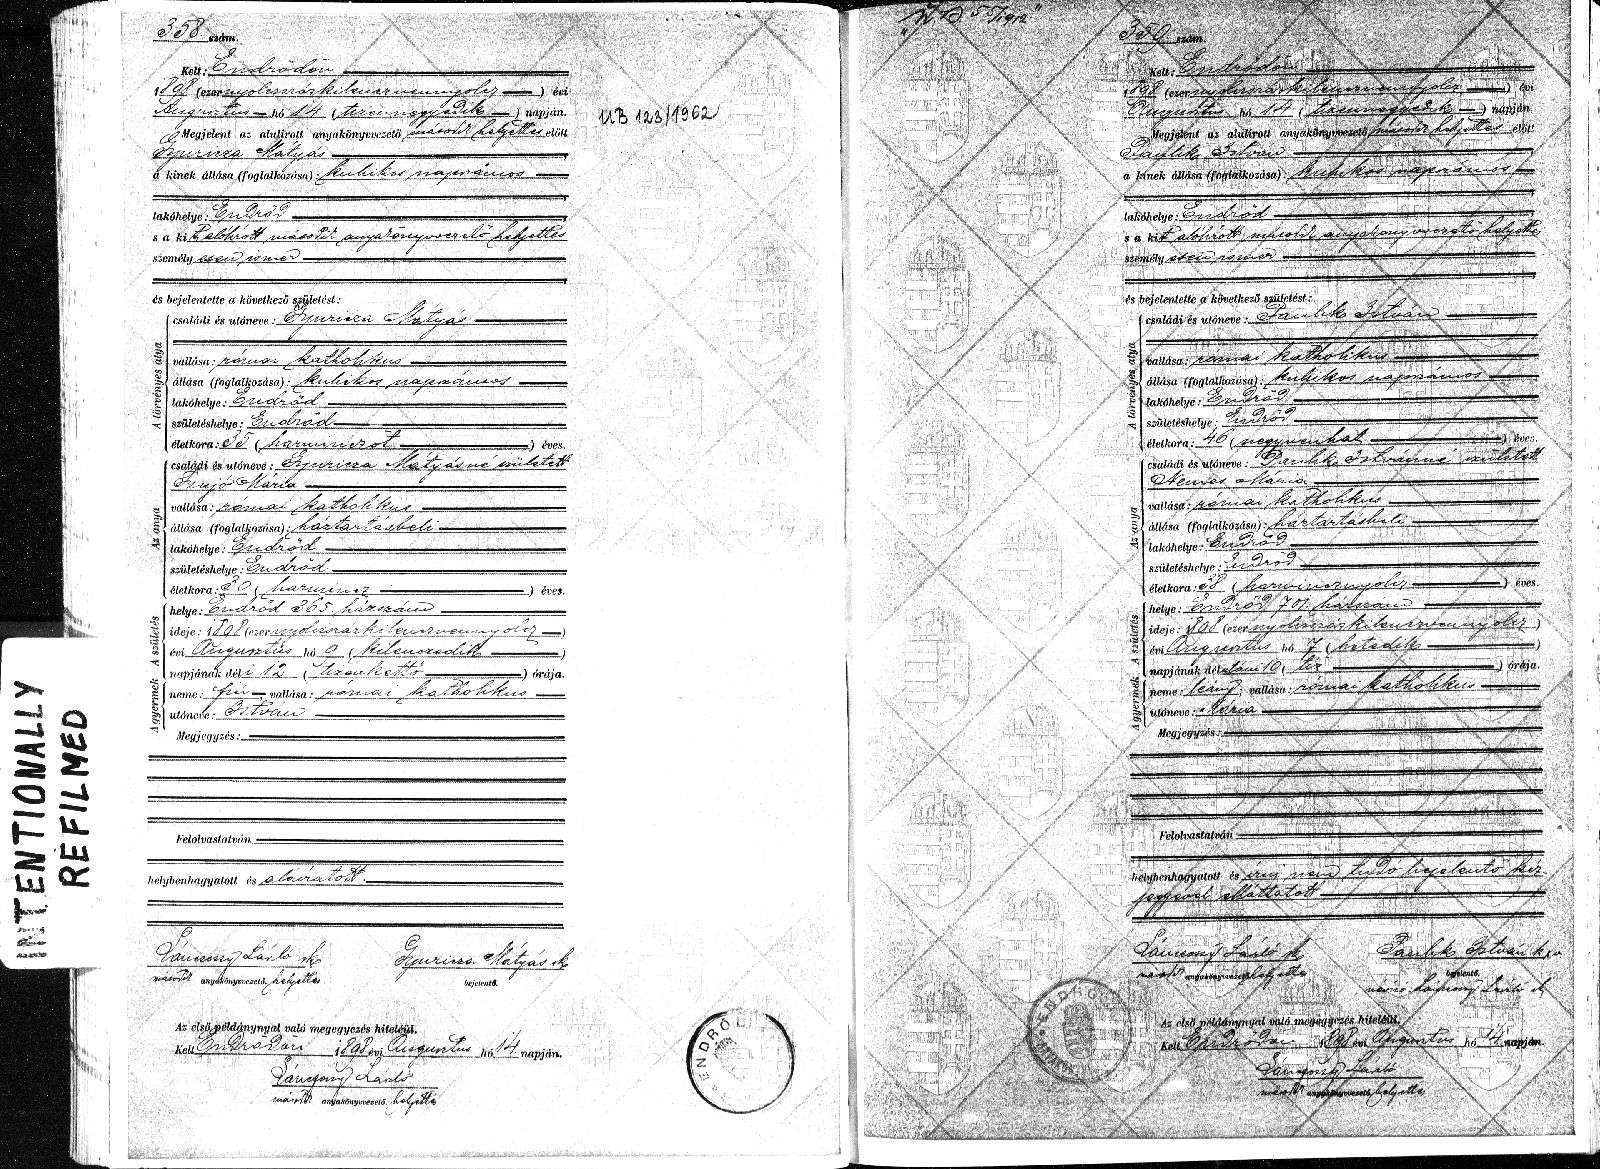 358. szám.
Kelt: Endrődön
1898 (ezernyolczszázkilenczvennyolcz) évi
Augusztus hó 14 (tizennegyedik) napján.
Megjelent az alulirott anyakönyvvezető másodt helyettes előtt
Gyuricza Mátyás
a kinek állása (foglalkozása): kubikos napszámos
lakóhelye: Endrőd
s a kit alólirott másodt anyakönyvvezető helyettes
személyesen ismer
és bejelentette a következő születést:
A törvényes atya
családi és utóneve: Gyuricza Mátyás
vallása: római katholikus
állása (foglalkozása): kubikos napszámos
lakóhelye: Endrőd
születéshelye: Endrőd
életkora: 35 (harminczöt) éves.
Az anya
családi és utóneve: Gyuricza Mátyásné született
Mária
vallása: római katholikus
állása (foglalkozása): háztartásbeli
lakóhelye: Endrőd
születéshelye: Endrőd
életkora: 30 (harmincz) éves.
A születés
helye: Endrőd 365. házszám
ideje: 1898 (ezernyolczszázkilenczvennyolcz)
évi Augusztus hó 9 (kilenczedik)
napjának déli 12 (tizenkettő) órája.
A gyermek
neme: fiú vallása: római katholikus
utóneve: István
Megjegyzés:
Felolvastatván
helybenhagyatott és aláiratott.
Lánczony László sk
másodt anyakönyvvezető helyettes
Gyuricza Mátyás sk
bejelentő.
Az első példánynyal való megegyezés hiteléül.
Kelt Endrődön 1898 évi Augusztus hó 14 napján.
Lánczony László
másodt anyakönyvvezető. helyettes
ENDRŐD
UB 123/1962
INTENTIONALLY
REFILMED
359. szám.
Kelt: Endrődön
1898 (ezernyolczszázkilenczvennyolcz) évi
Augusztus hó 14 (tizennegyedik) napján.
Megjelent az alulirott anyakönyvvezető másodt helyettes előtt
Paulik István
a kinek állása (foglalkozása): kubikos napszámos
lakóhelye: Endrőd
s a kit alólirott másodt anyakönyvvezető helyettes
személyesen ismer
és bejelentette a következő születést:
A törvényes atya
családi és utóneve: Paulik István
vallása: római katholikus
állása (foglalkozása): kubikos napszámos
lakóhelye: Endrőd
születéshelye: Endrőd
életkora: 46 (negyvenhat) éves.
Az anya
családi és utóneve: Paulik Istvánné született
Nemes Mária
vallása: római katholikus
állása (foglalkozása): háztartásbeli
lakóhelye: Endrőd
születéshelye: Endrőd
életkora: 38 (harmincznyolcz) éves.
A születés
helye: Endrőd 701. házszám
ideje: 1898 (ezernyolczszázkilenczvennyolcz)
évi Augusztus hó 7 (hetedik)
napjának délutáni 10 (tíz) órája.
A gyermek
neme: leány; vallása: római katholikus
utóneve: Mária
Megjegyzés:
Felolvastatván
helybenhagyatott és írni nem tudó bejelentő kéz
jegyével elláttatott
Lánczony László sk
másodt anyakönyvvezető helyettes
Paulik István
bejelentő.
Az első példánynyal való megegyezés hiteléül.
Kelt Endrődön 1898 évi Augusztus hó 14 napján.
Lánczony László
másodt anyakönyvvezető. helyettes